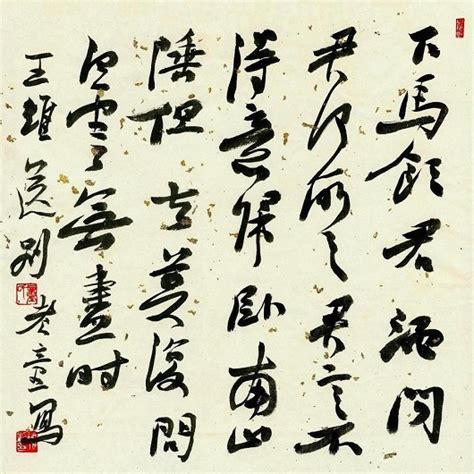 下馬飲君酒問
君何所之君言不
得意歸卧南山
陲但去莫復問
白雲無盡時
王維送别 老童寫